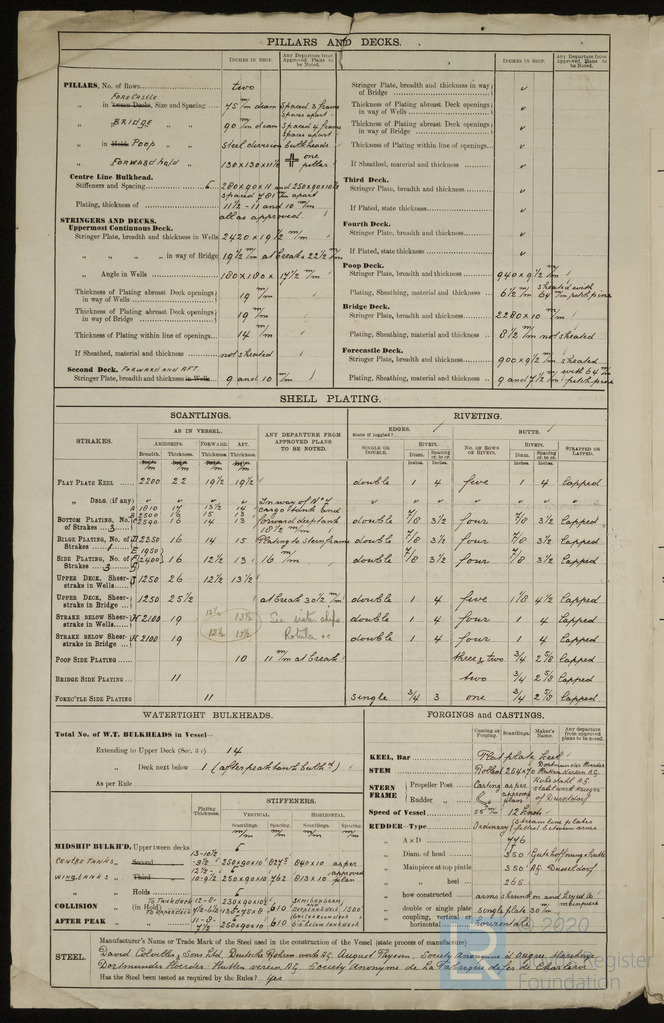 PILLARS AND DECKS.
INCHES IN SHIP.
Any Departure from Approved Plans to be Noted.
PILLARS, No. of Rows
two
FORECASTLE
„ in 'tween Decks, Size and Spacing
75 m/m diam spaced 2 frame spaces apart
„ BRIDGE „ „
90 m/m diam spaced 4 frame spaces apart
„ in Hold Poop „
steel division bulkheads
„ FORWARD hold „
130 x 130 x 11½ one pillar
Centre Line Bulkhead.
Stiffeners and Spacing
280 x 90 x 11 and 250 x 90 x 10
spaced 781 m/m apart
Plating, thickness of
11½ - 11 and 10 m/m
all as approved.
STRINGERS AND DECKS.
Uppermost Continuous Deck.
Stringer Plate, breadth and thickness in Wells
2420 x 19½ m/m
„ „ „ „ in way of Bridge
19½ m/m at break 22½ m/m
„ Angle in Wells
180 x 180 x 17½ m/m
Thickness of Plating abreast Deck openings in way of Wells
19 m/m
Thickness of Plating abreast Deck openings in way of Bridge
19 m/m
Thickness of Plating within line of openings
14 m/m
If Sheathed, material and thickness
not sheated
Second Deck. FORWARD AND AFT.
Stringer Plate, breadth and thickness in Wells
9 and 10 m/m
INCHES IN SHIP.
Any Departure from Approved Plans to be Noted.
Stringer Plate, breadth and thickness in way of Bridge
Thickness of Plating abreast Deck openings in way of Wells
Thickness of Plating abreast Deck openings in way of Bridge
Thickness of Plating within line of openings
If Sheathed, material and thickness
Third Deck.
Stringer Plate, breadth and thickness
If Plated, state thickness
Fourth Deck.
Stringer Plate, breadth and thickness
If Plated, state thickness
Poop Deck.
Stringer Plate, breadth and thickness
940 x 9½ m/m
Plating, Sheathing, material and thickness
6½ m/m sheated with 64 m/m pitch pine
Bridge Deck.
Stringer Plate, breadth and thickness
2280 x 10 m/m
Plating, Sheathing, material and thickness
8½ m/m not sheated
Forecastle Deck.
Stringer Plate, breadth and thickness
900 x 9½ m/m sheated
Plating, Sheathing, material and thickness
9 and 7½ m/m with 64 m/m pitch pine
SHELL PLATING.
SCANTLINGS.
RIVETING.
STRAKES.
AS IN VESSEL.
AMIDSHIPS. FORWARD. AFT.
Breadth. Thickness. Thickness. Thickness.
ANY DEPARTURE FROM APPROVED PLANS TO BE NOTED.
EDGES.
State if joggled?
BUTTS.
SINGLE OR DOUBLE.
RIVETS.
Diam. Spacing cr. to cr.
NO. OF ROWS OF RIVETS.
RIVETS.
Diam. Spacing cr. to cr.
STRAPPED OR LAPPED.
Inches. Inches. Inches. Inches.
FLAT PLATE KEEL 2200 22 19½ 19½ double 1 4 five 1 4 lapped
„ DBLG. (if any)
In way of No 1
A 1810 17 13½ 14 cargo tank and
BOTTOM PLATING, No. of Strakes 3
B 2500 16 15 13
C 2590 16 14 13 forward deep tank double 7/8 3½ four 7/8 3½ lapped
18½ m/m
BILGE PLATING, No. of Strakes 1
D 2350 16 14 15 Plating to sternframe double 7/8 3½ four 7/8 3½ lapped
SIDE PLATING, No. of Strakes 3
E 1950
F 2400 16 12½ 13 16 m/m double 7/8 3½ four 7/8 3½ lapped
UPPER DECK, Sheerstrake in Wells J 1250 26 12½ 13½
UPPER DECK, Sheerstrake in Bridge 1250 25½ at break 30½ m/m double 1 4 five 1⅛ 4½ lapped
STRAKE BELOW SHEERstrake in Wells H 2100 19 13½ See sister ships double 1 4 four 1 4 lapped
STRAKE BELOW SHEERstrake in Bridge H 2100 19 12½ 13½ Rotula double 1 4 four 1 4 lapped
POOP SIDE PLATING 10 11 m/m at break three & two 3/4 2⅝ lapped
BRIDGE SIDE PLATING 11 two 3/4 2⅝ lapped
FOREC'TLE SIDE PLATING 11 single 3/4 3 one 3/4 2⅝ lapped
WATERTIGHT BULKHEADS.
Total No. of W.T. BULKHEADS in Vessel—
Extending to Upper Deck (Sec. 3 c) 14
„ Deck next below 1 (afterpeak tank bulkhd)
As per Rule
Plating Thickness.
STIFFENERS.
VERTICAL. HORIZONTAL.
Scantlings. Spacing. Scantlings. Spacing.
m/m m/m m/m m/m
MIDSHIP BULKH'D, Upper 'tween decks
CENTRE TANKS „ Second „
13-10½ -9½ 250x90x10 827.5 840x10 as per
WING TANKS „ Third „
12½- 10-9½ 250x90x10 762 813x10 approved plan
„ Holds
COLLISION „ (in Hold)
To Tank deck 12-8 230x90x10
To Upper deck 130x75x8 610 1500
AFTER PEAK „ „
11-8- 7½ 250x90x10 610
FORGINGS and CASTINGS.
Casting or Forging. Scantlings. Maker's Name. Any departure from approved plans to be noted.
KEEL, Bar Flat plate keel
STEM Rolled 254x70 Dortmunder Hoerder Hütten Verein A.G.
STERN FRAME
Propeller Post Casting as per approved plan Ruhrstahl A.G. Stahlwerk Krieger of Dusseldorf
Rudder „
Speed of Vessel 12 knots
RUDDER—Type Ordinary stream line plates fitted between arms
„ A x D 746
„ Diam. of head 350 Gutehoffnungshutte
Mainpiece at top pintle 350 AG. Dusseldorf
„ „ heel 265
„ how constructed arms shrunk on and keyed to mainpiece
„ double or single plate single plate 30 m/m
„ coupling, vertical or horizontal horizontale
STEEL.
Manufacturer's Name or Trade Mark of the Steel used in the construction of the Vessel (state process of manufacture)
David Colvilles & Sons Ltd, Deutsche Rohren werke AG August Thyssen, Société Anonyme d'Ougrée Marehaye
Dortmunder Hoerder Hutten verein A.G. Société Anonyme de La Fabrique de fer de Charleroi
Has the Steel been tested as required by the Rules? Yes
© 2020
LR
Lloyd's Register
Foundation